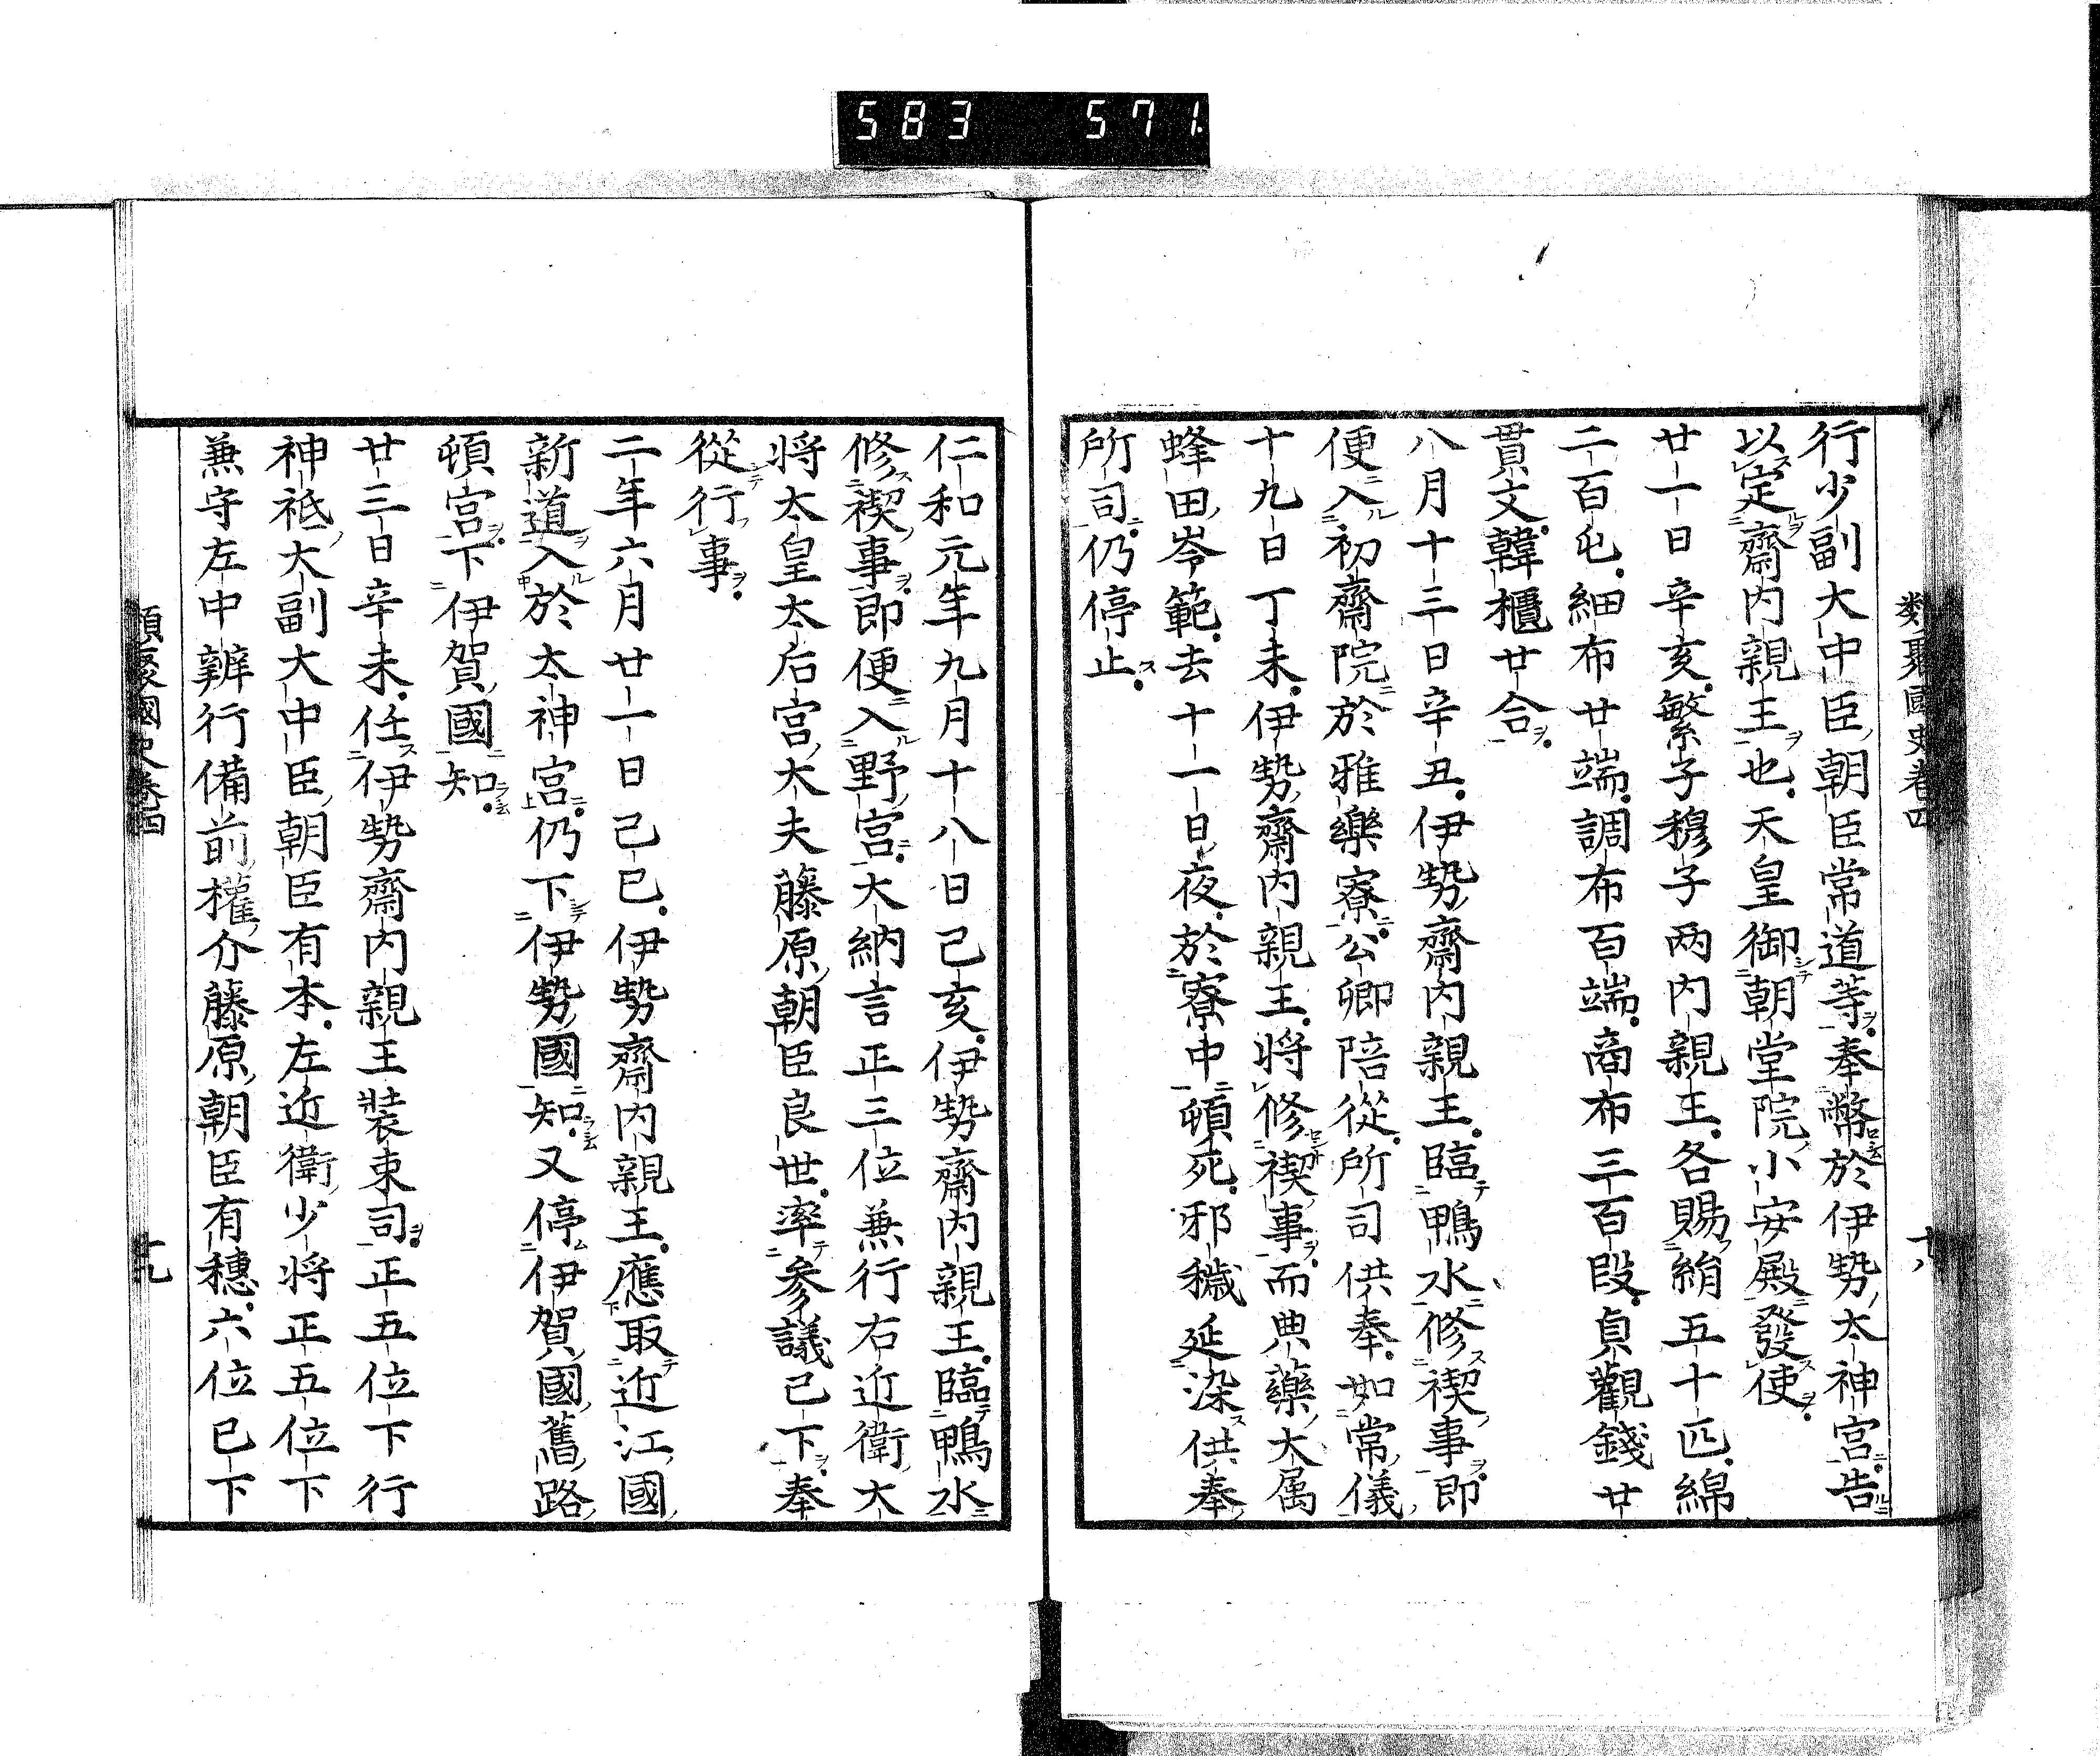 583 571
類聚國史卷四
十八
行少副大中臣朝臣常道等奉幣於伊勢太神宮告
以定齋內親王也天皇御朝堂院小安殿發使
廿一日辛亥繁子穆子两內親王各賜絹五十匹綿
二百屯細布廿端調布百端商布三百段貞觀錢廿
貫文韓櫃廿合
八月十三日辛丑伊勢齋內親王臨鴨水修禊事即
便入初齋院於雅樂寮公卿陪從所司供奉如常儀
十九日丁未伊勢齋內親王將修禊事而典藥大属
蜂田岑範去十一日夜於寮中頓死邪穢延染供奉
所司仍停止
仁和元年九月十八日己亥伊勢齋內親王臨鴨水
修禊事即便入野宮大納言正三位兼行右近衛大
將太皇太后宮大夫藤原朝臣良世率參議已下奉
從行事
二年六月廿一日己巳伊勢齋內親王應取近江國
新道入於太神宮仍下伊勢國知又停伊賀國舊路
頓宮下伊賀國知
廿三日辛未任伊勢齋內親王裝束司正五位下行
神祇大副大中臣朝臣有本左近衛少將正五位下
兼守左中辨行備前權介藤原朝臣有穗六位已下
類聚國史卷四
十九